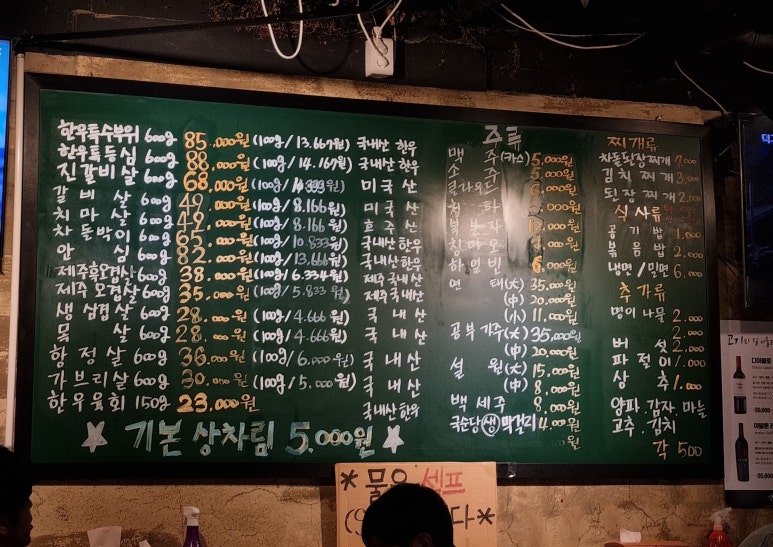 한우특수부위 600g 85,000원 (100g/13.667원) 국내산 한우
한우특등심 600g 88,000원 (100g/14.167원) 국내산 한우
진갈비살 600g 68,000원 미국산
갈비살 600g 49,000원 (100g/8.166원) 미국산
치마살 600g 49,000원 (100g/8.166원) 호주산
차돌박이 600g 65,000원 (100g/10.833원) 국내산한우
안심 600g 82,000원 (100g/13,666원) 국내산한우
제주흑오겹살 600g 38,000원 (100g/6.334원) 제주국내산
제주오겹살 600g 35,000원 (100g/5.833원) 제주국내산
생삼겹살 600g 28,000원 (100g/4.666원) 국내산
목살 600g 28,000원 (100g/4.666원) 국내산
항정살 600g 36,000원 (100g/6.000원) 국내산
가브리살 600g 30,000원 (100g/5,000원) 국내산
한우육회 150g 23.000원 국내산한우
기본 상차림 5.000원
주류
맥주(카스) 5.000원
소주
청하
복분자
하일빈 6.000원
연태(大) 35.000원
(中) 20.000원
(小) 11.000원
공부기주(大) 35,000원
(中) 20.000원
설원(大) 15.000원
(中) 8.000원
백세주 8.000원
국순당 생 막걸리 4.000원
찌개류
차돌된장찌개 7.000
김치찌개 3,000
된장찌개 2,000
식사류
공기밥 1,000
볶음밥 2,000
냉면/밀면 6,000
추가류
명이나물 2.000
버섯 2.000
파절이 1.000
상추 1.000
양파.감자 마늘
고추.김치
각 500
*물은 셀프
다*
고기와